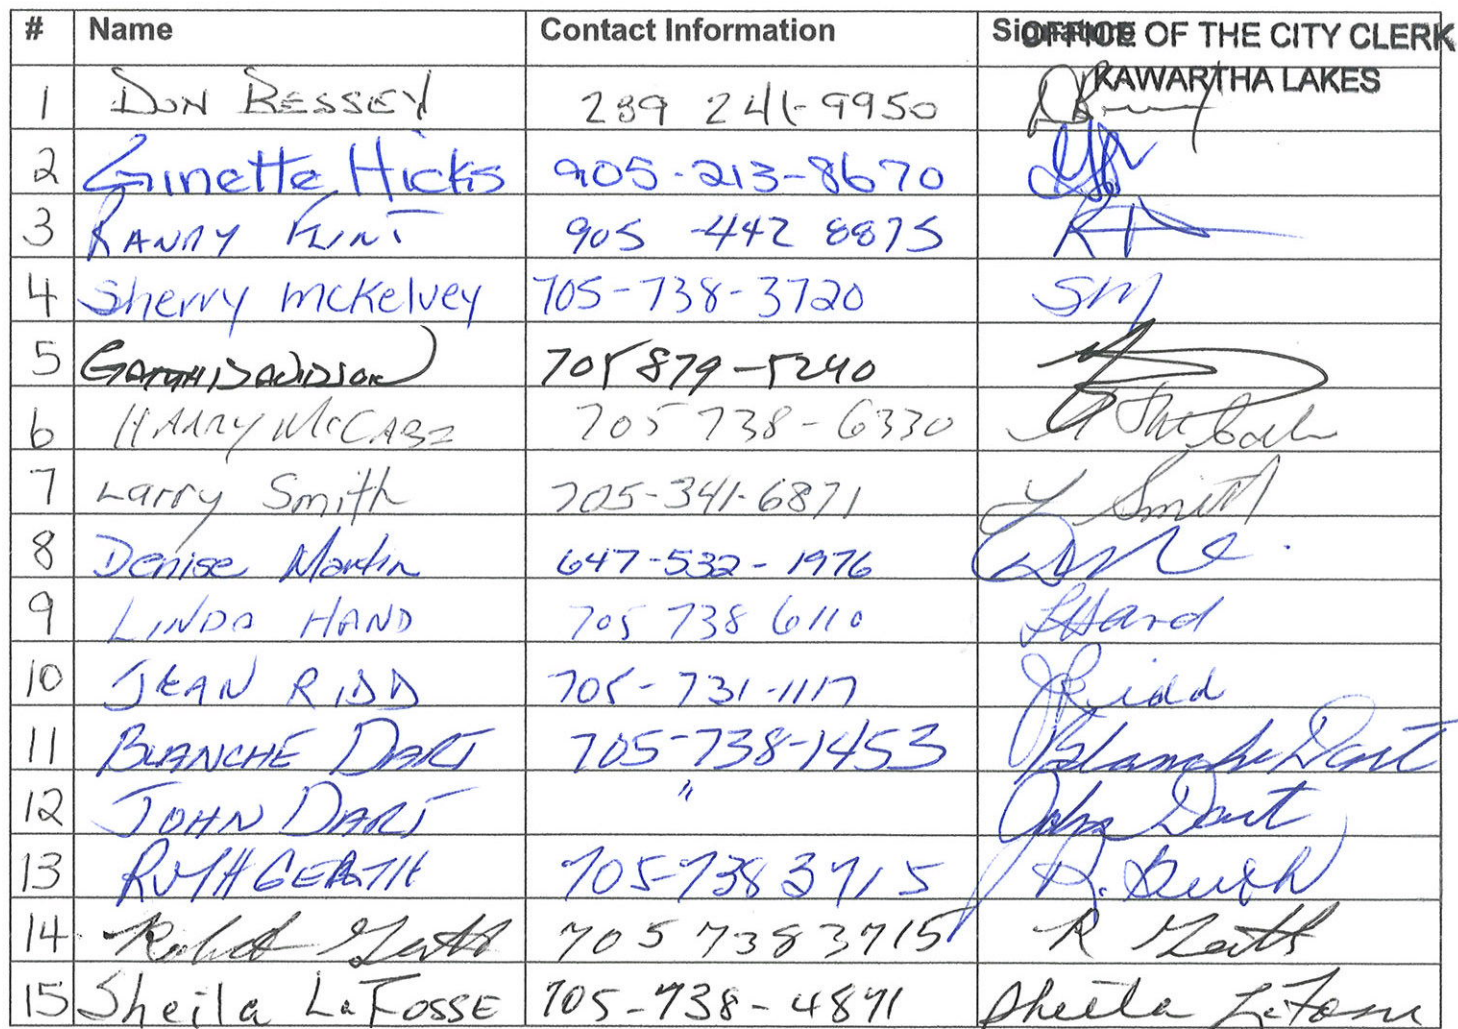 # Name Contact Information Signature OFFICE OF THE CITY CLERK
KAWARTHA LAKES
1 DON BESSEY 289 241-9950
2 Ginette Hicks 905-213-8670
3 RANDY FLINT 905-442 8875
4 Sherry McKelvey 705-738-3720 SM
5 GARTH DAVIDSON 705 879-5240
6 HARRY McCABE 705 738-6330 H McCabe
7 Larry Smith 705-341-6871 L Smith
8 Denise Martin 647-532-1976
9 LINDA HAND 705 738 6110 LHand
10 JEAN RIDD 705-731-1117 JRidd
11 BLANCHE DART 705-738-1453 Blanche Dart
12 JOHN DART " John Dart
13 RUTH GERTH 705-738 3715 R. Gerth
14 Robert Gerth 705 738 3715 R Gerth
15 Sheila LaFosse 705-738-4871 Sheila LaFosse